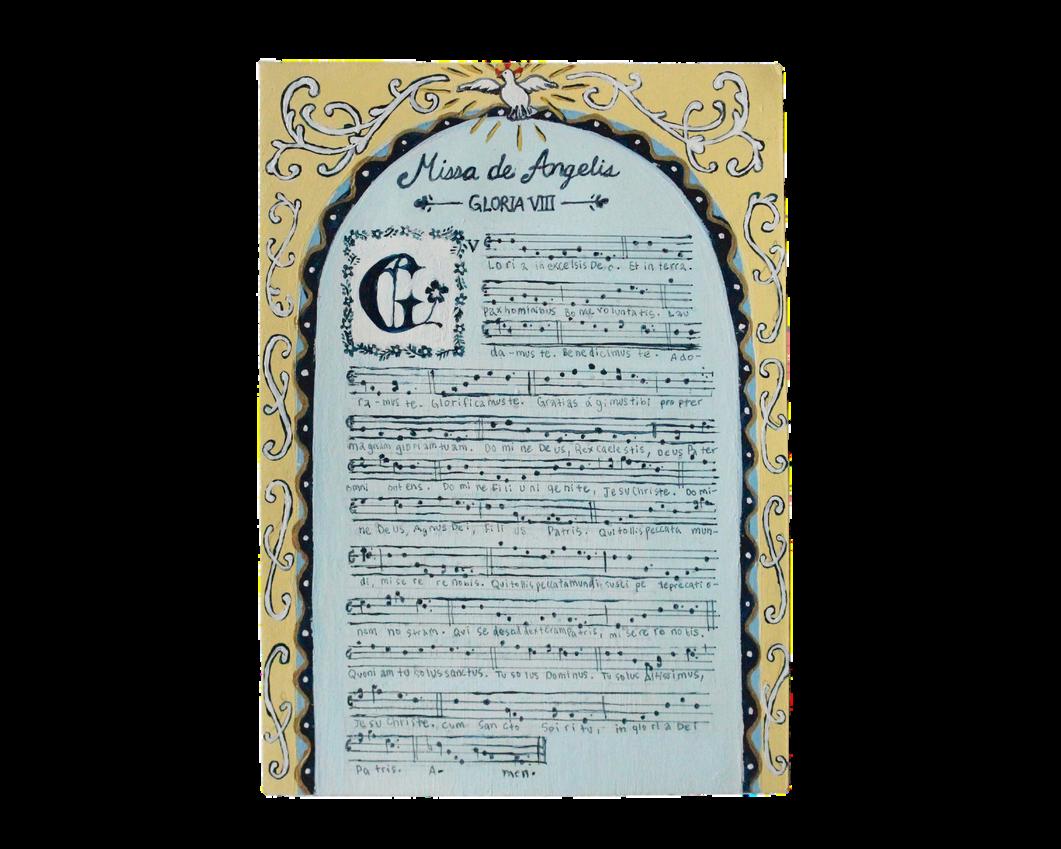 Missa de Angelis
GLORIA VIII
G
V
Lori a in excelsis De o. Et in terra.
pax hominibus Bo nae voluntatis. Lau
da-mus te. Benedicimus te. Ado-
ra-mus te. Glorificamus te. Gratias agimus tibi propter
magnam gloriam tuam. Do mi ne De us, Rex caelestis, Deus Pa ter
omni ontens. Do mi ne Fi li uni ge nite, Jesu Christe. Do mi-
ne De us, Agnus Dei, Fi li us Patris. Qui tollis peccata mun-
di, mi se re re nobis. Qui tollis peccata mundi, susci pe deprecatio-
nem no stram. Qui se des ad dexteram Patris, mi se re re no bis.
Quoni am tu solus sanctus. Tu so lus Dominus. Tu solus Altissimus,
Jesu Christe. cum San cto Spi ri tu, in glo ri a Dei
Pa tris. A- men.